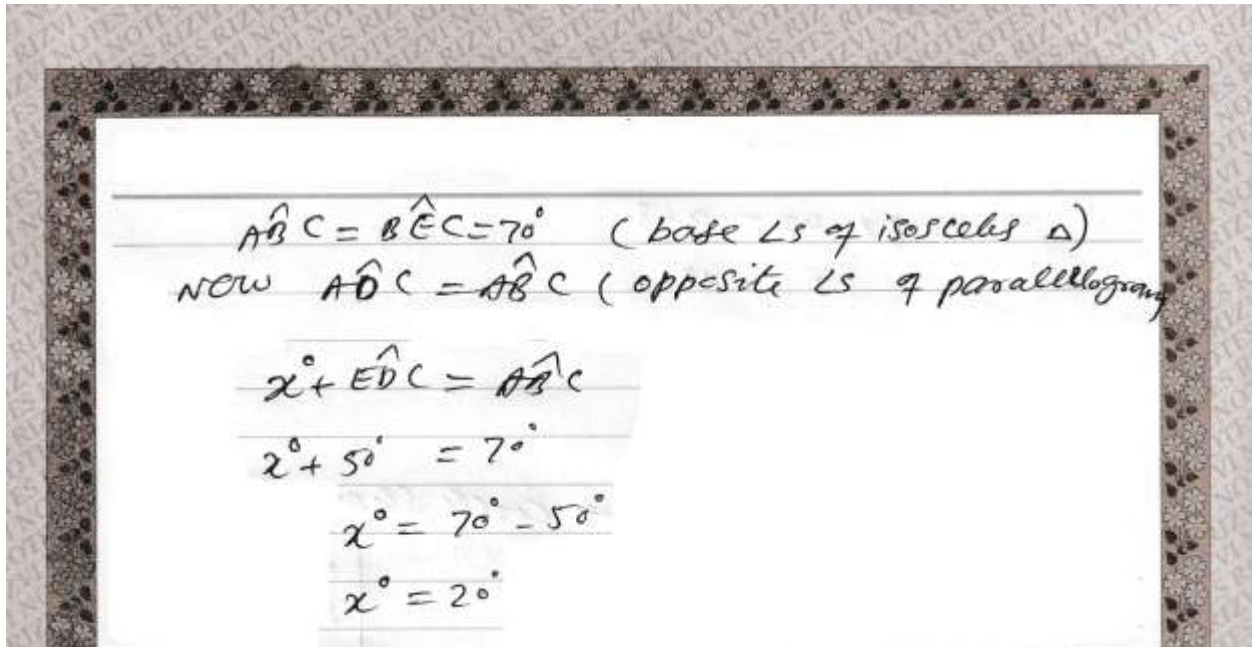 AB̂C = BÊC = 70° (base ∠s of isosceles Δ)
NOW AD̂C = AB̂C (opposite ∠s of parallelogram
x° + ED̂C = AB̂C
x° + 50° = 70°
x° = 70° - 50°
x° = 20°